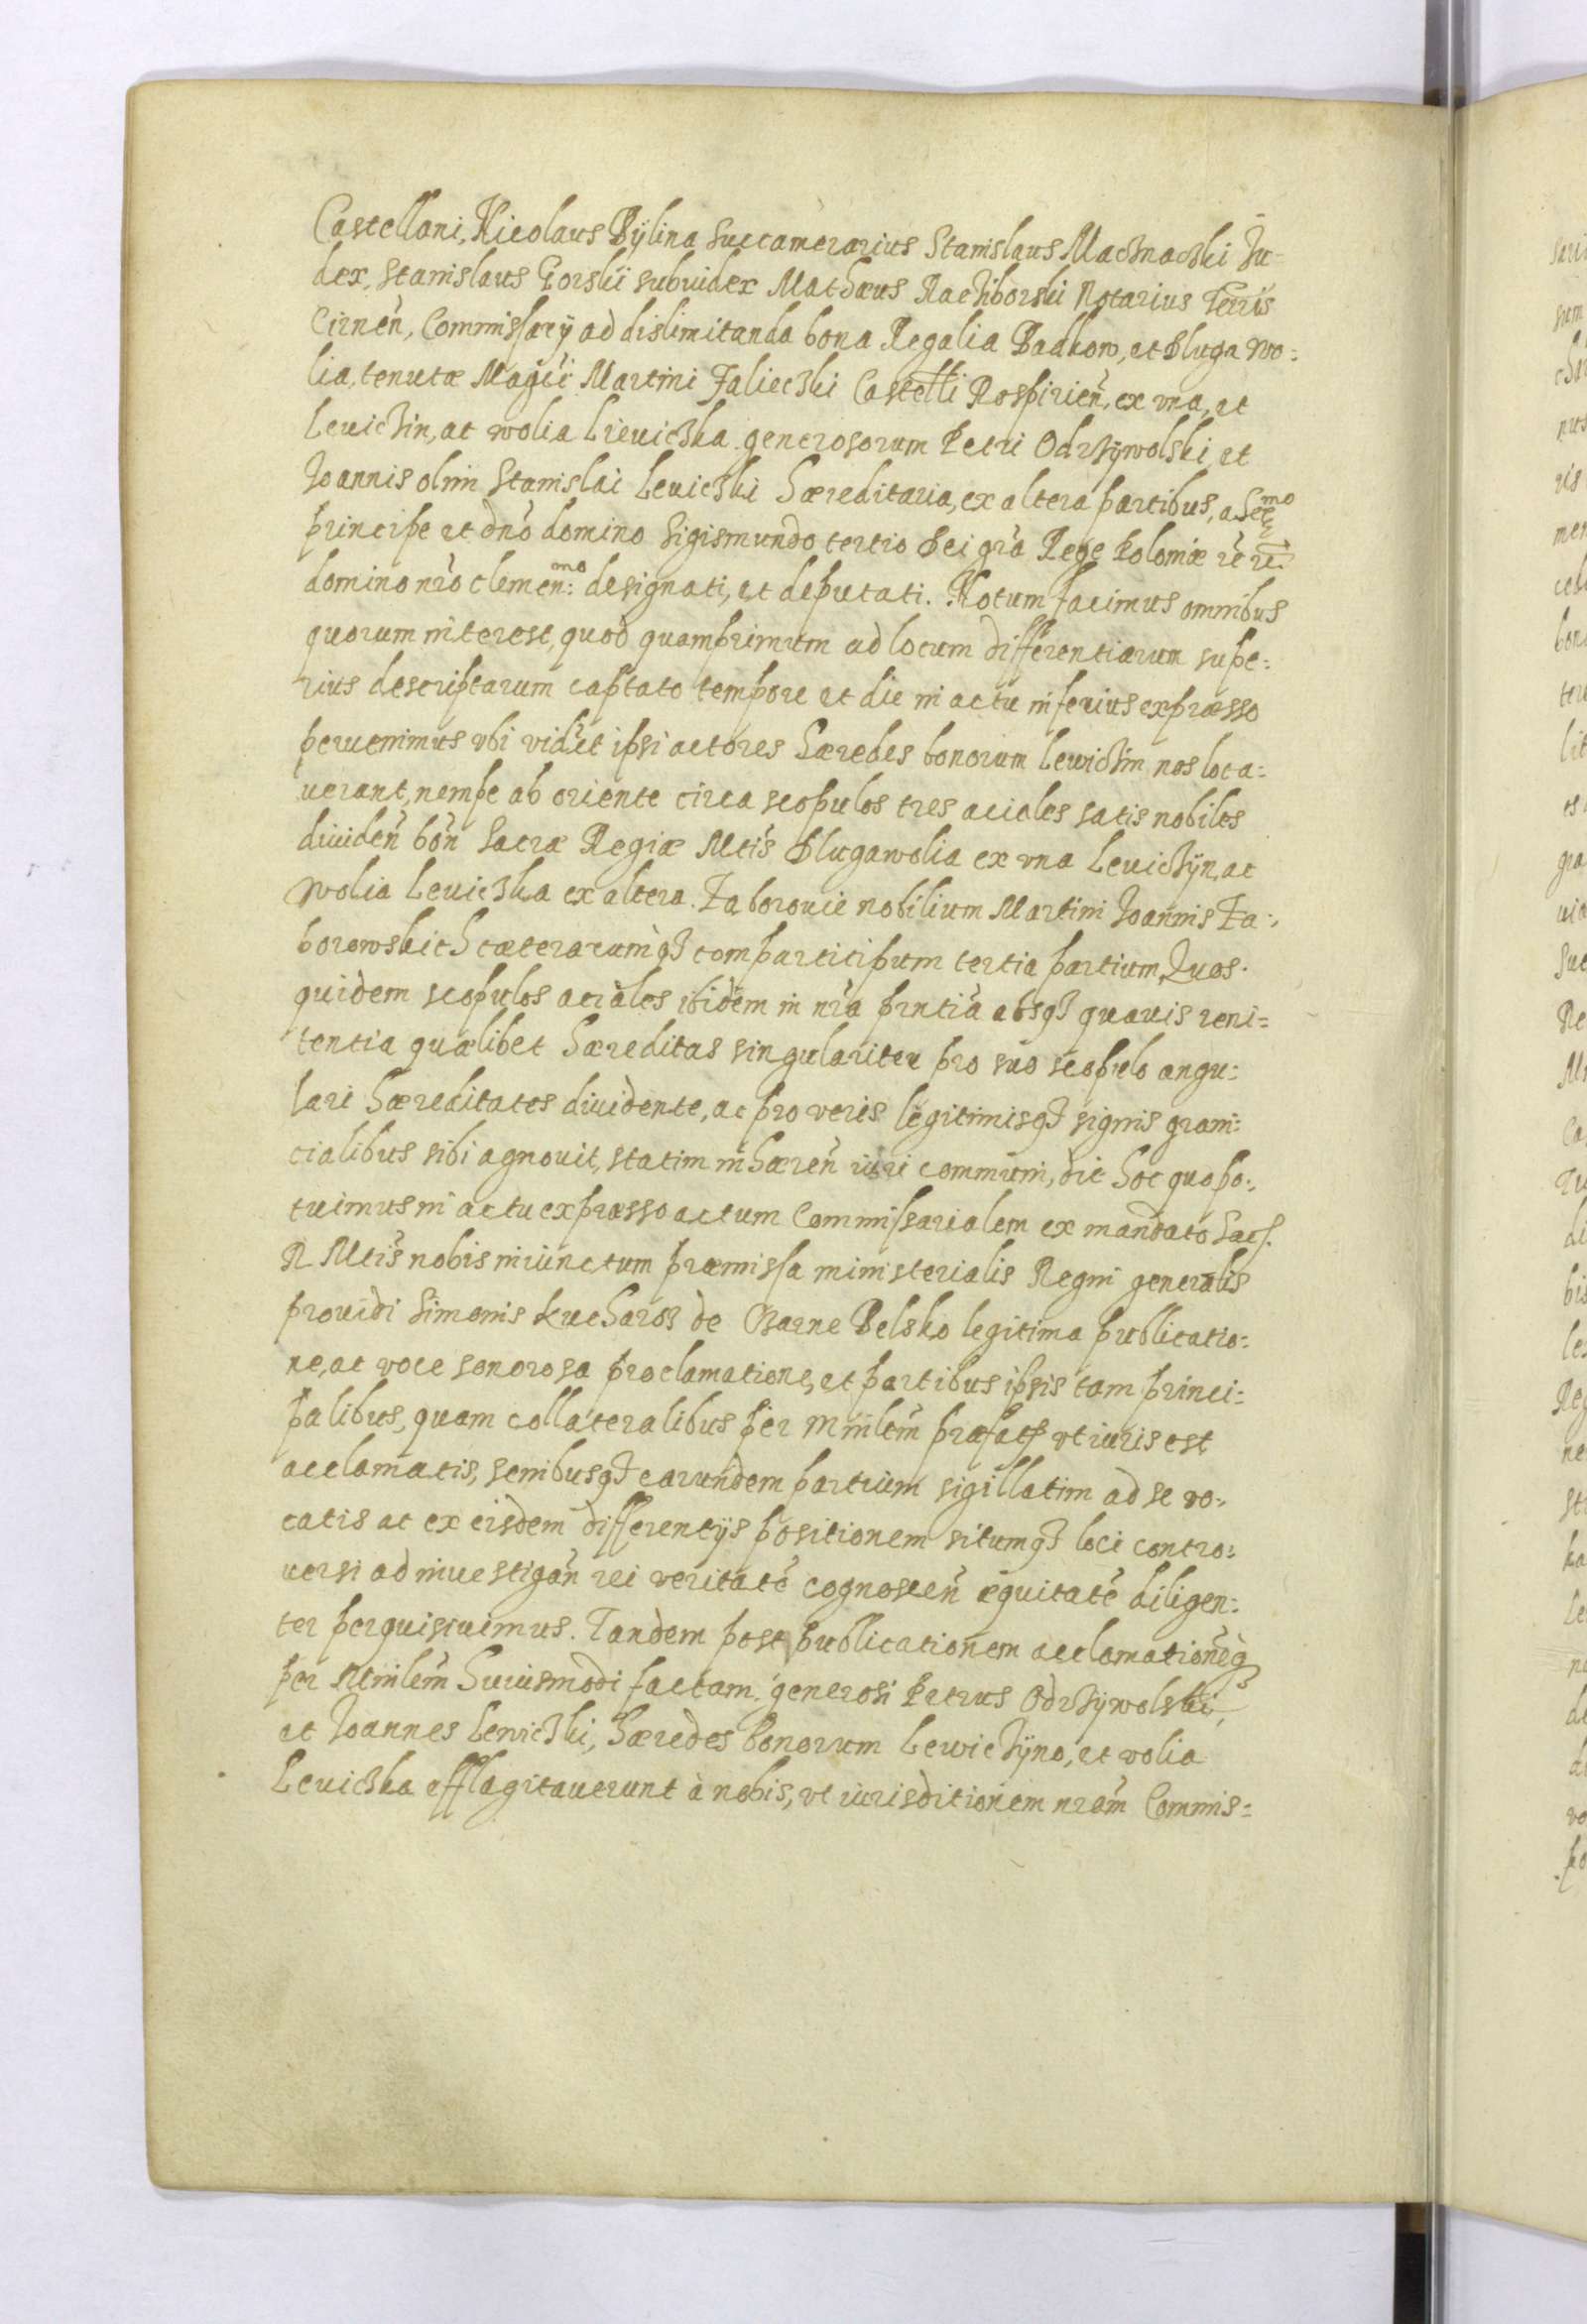 Castellani, Nicolaus Bÿlina Succamerarius Stanislaus Macznaczki Ju=
dex, Stanislaus Gorskii subiudex Mathæus Raczhiborski Notarius Terris
Cirneñ, Commissarÿ ad dislimitanda bona Regalia Badkow, et Dluga Wo:
lia, tenutæ Magcii Martini Falieczki Castelli Rospirieñ, ex vna, et
Levickin, ac wolia Lieviczka generosorum Petri Odrzÿwolski et
Joannis olim Stanislai Levicski hæreditaria, ex altera partibus, a Serᵐᵒ
principe et dño domino Sigismundo tertio Dei gra Rege Poloniæ rc rc
domino nro clemen:ᵐᵒ designati, et deputati. Notum facimus omnibus
quorum interest, quod quamprimum ad locum differentiarum supe:
rius descriptarum captato tempore et die in actu inferius expræsso
pervenimus vbi vidĕt ipsi actores hæredes bonorum Lewickin nos loca:
uerant, nempe ab oriente circa scopulos tres aciales satis nobiles
diuideñ boñ Sacræ Regiæ Mtis Dlugawolia ex vna Levickÿn, ac
Wolia Leviczka ex altera. Zaborovie nobilium Martini Joannis Za:
borowskich cæterarumqȝ comparticipum tertia partium, Quos.
quidem scopulos aciales ibidem in nra pñtia absqȝ quavis reni=
tentia quælibet hæreditas singulariter pro suo scopulo angu:
lari hæreditates diuidente, ac pro veris legitimisqȝ signis grani:
cialibus sibi agnouit, statim inhæreñ iuri communi, dic hoc quo po:
tuimus in actu expræsso actum Commissarialem ex mandato Sac.
R Mtis nobis iniunctum præmissa ministerialis Regni generalis
providi Simonis Kucharoz de Czarne Belsko legitima publicatio:
ne, ac voce sonorosa proclamatione, et partibus ipsis tam princi=
palibus, quam collateralibus per Minlem præfat vt iuris est
acclamatis, senibusqȝ earundem partium sigillatim ad se vo:
catis ac ex eisdem differentÿs positionem situmqȝ loci contro:
uersi ad inuestigañ rei veritatē cognosceñ equitatē diligen:
ter perquisivimus. Tandem post publicationem acclamationēqȝ
per Minlem huiusmodi factam, generosi Petrus Odrzÿwolski,
et Joannes Lewiczki, hæredes bonorum Lewickÿno, et wolia
Leviczka efflagitaverunt à nobis, vt iurisditionem nram Commis=